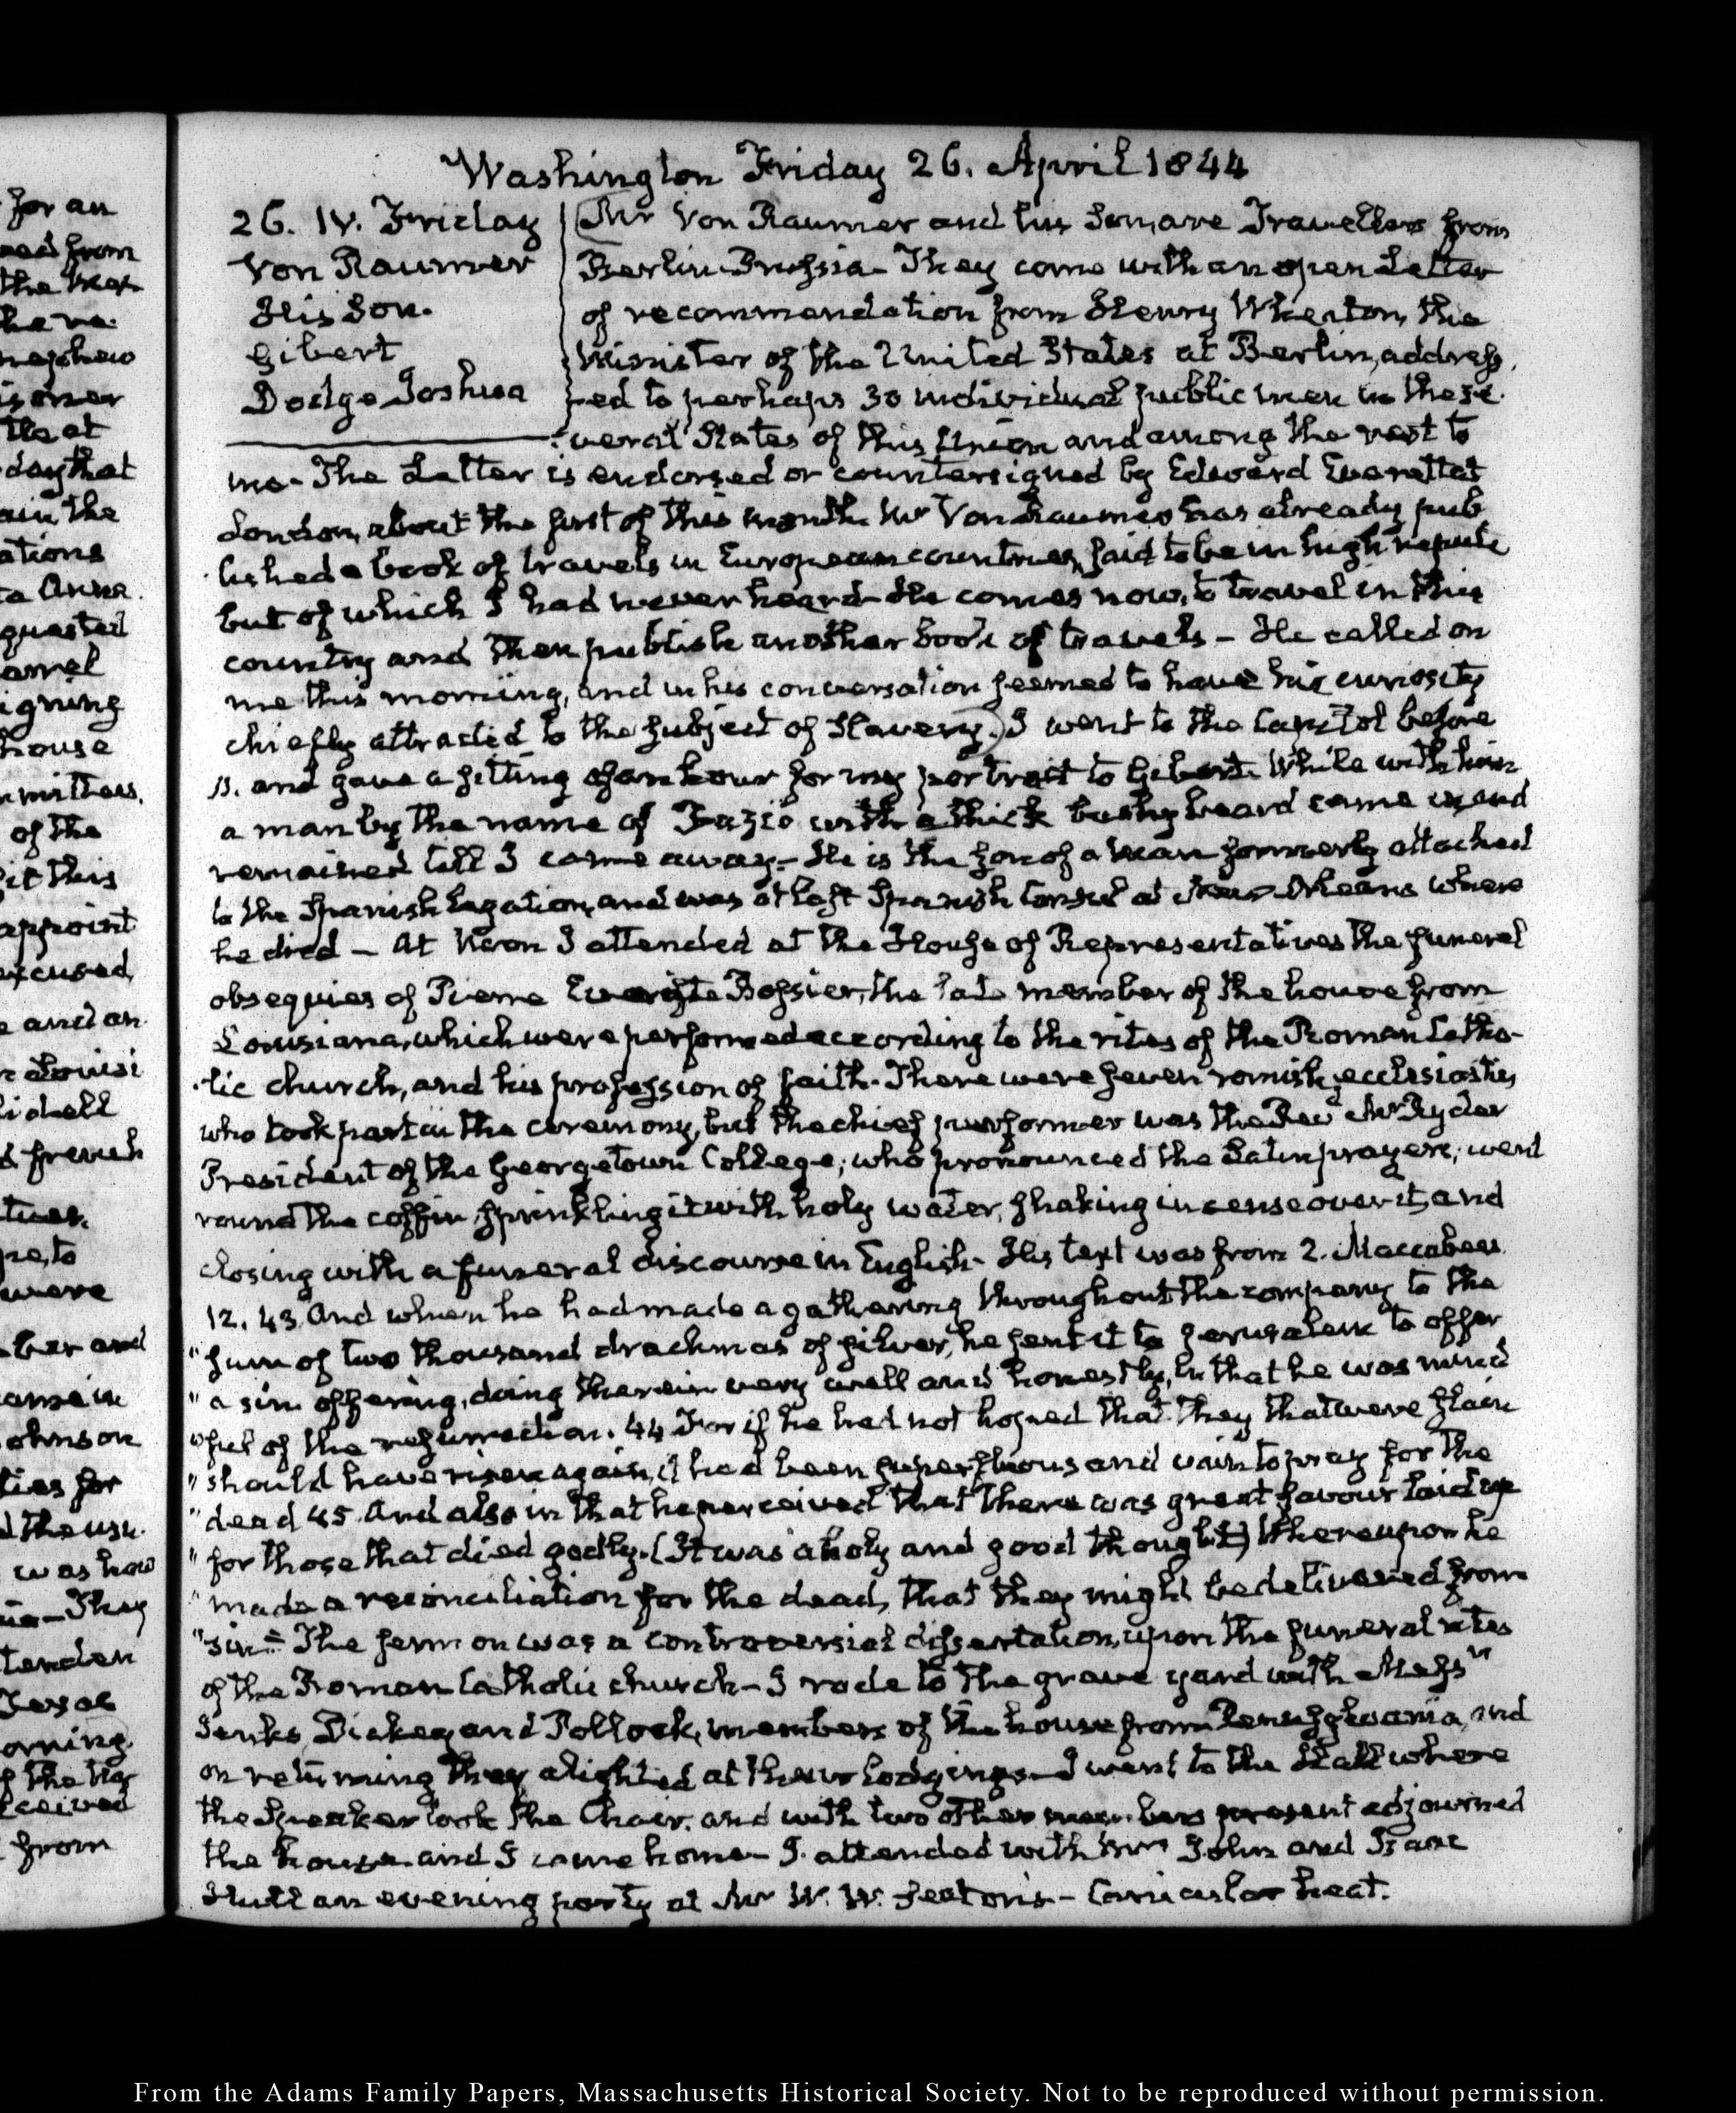 for an
from
the
nephew
day that
ain the
ations
a Anna.
quested
igning
house
mittees.
of the
it this
appoint
excused,
e and an
Louisi
lidell
d french
were
ber and
ohnson
ties for
was how
They
tenden
orning
ceived
from
Washington Friday 26. April 1844
26. IV. Friday
Von Raumer
His Son.
Gibert
Dodge Joshua
(Mr Von Raumer and his Son, are Travellers from
Berlin Prussia— They come with an open Letter
of recommendation from Henry Wheaton, the
Minister of the United States at Berlin, address
ed to perhaps 30 individual public men in the se-
veral States of this Union and among the rest to
me— The Letter is endorsed or countersigned by Edward Everett at
London, about the first of this month. Mr Von Raumer has already pub
lished a book of travels in European countries, said to be in high repute
but of which I had never heard— He comes now, to travel in this
country and then publish another book of travels— He called on
me this morning, and in his conversation seemed to have his curiosity
chiefly attracted to the subject of Slavery.) I went to the Capitol before
11. and gave a sitting of an hour for my portrait to Gibert. While with him
a man by the name of Fazio with a thick bushy beard came in, and
remained till I came away— He is the son of a man formerly attached
to the Spanish Legation, and was at last Spanish Consul at New Orleans where
he died— At Noon I attended at the House of Representatives the funeral
obsequies of Pierre Evariste Bossier, the late member of the house from
Louisiana, which were performed according to the rites of the Roman Catho-
lic church, and his profession of faith. There were seven romish ecclesiastics
who took part in the ceremony, but the chief performer was the Revd Mr Ryder
President of the Georgetown College, who pronounced the Latin prayers, went
round the coffin, sprinkling it with holy water, shaking incense over it, and
closing with a funeral discourse in English— His text was from 2. Maccabees
12. 43 And when he had made a gathering throughout the company to the
"sum of two thousand drachmas of silver, he sent it to Jerusalem to offer
"a sin offering, doing therein very well and honestly, in that he was mind
"ful of the resurrection. 44 For if he had not hoped that they that were slain
"should have risen again, it had been superfluous and vain to pray for the
"dead 45 And also in that he perceived that there was great favour laid up
"for those that died godly. (It was a holy and good thought) thereupon he
"made a reconciliation for the dead, that they might be delivered from
"sin"— The sermon was a controversial dissertation, upon the funeral rites
of the Roman Catholic church— I rode to the grave yard with Messrs
Jenks, Dickey and Pollock, members of the house from Pennsylvania, and
on returning they alighted at their lodgings— I went to the Hall where
the Speaker took the Chair, and with two other members present adjourned
the house and I came home— I attended with Mrs John and Isaac
Hull an evening party at Mr W. W. Seaton's— Canicular heat.
From the Adams Family Papers, Massachusetts Historical Society. Not to be reproduced without permission.